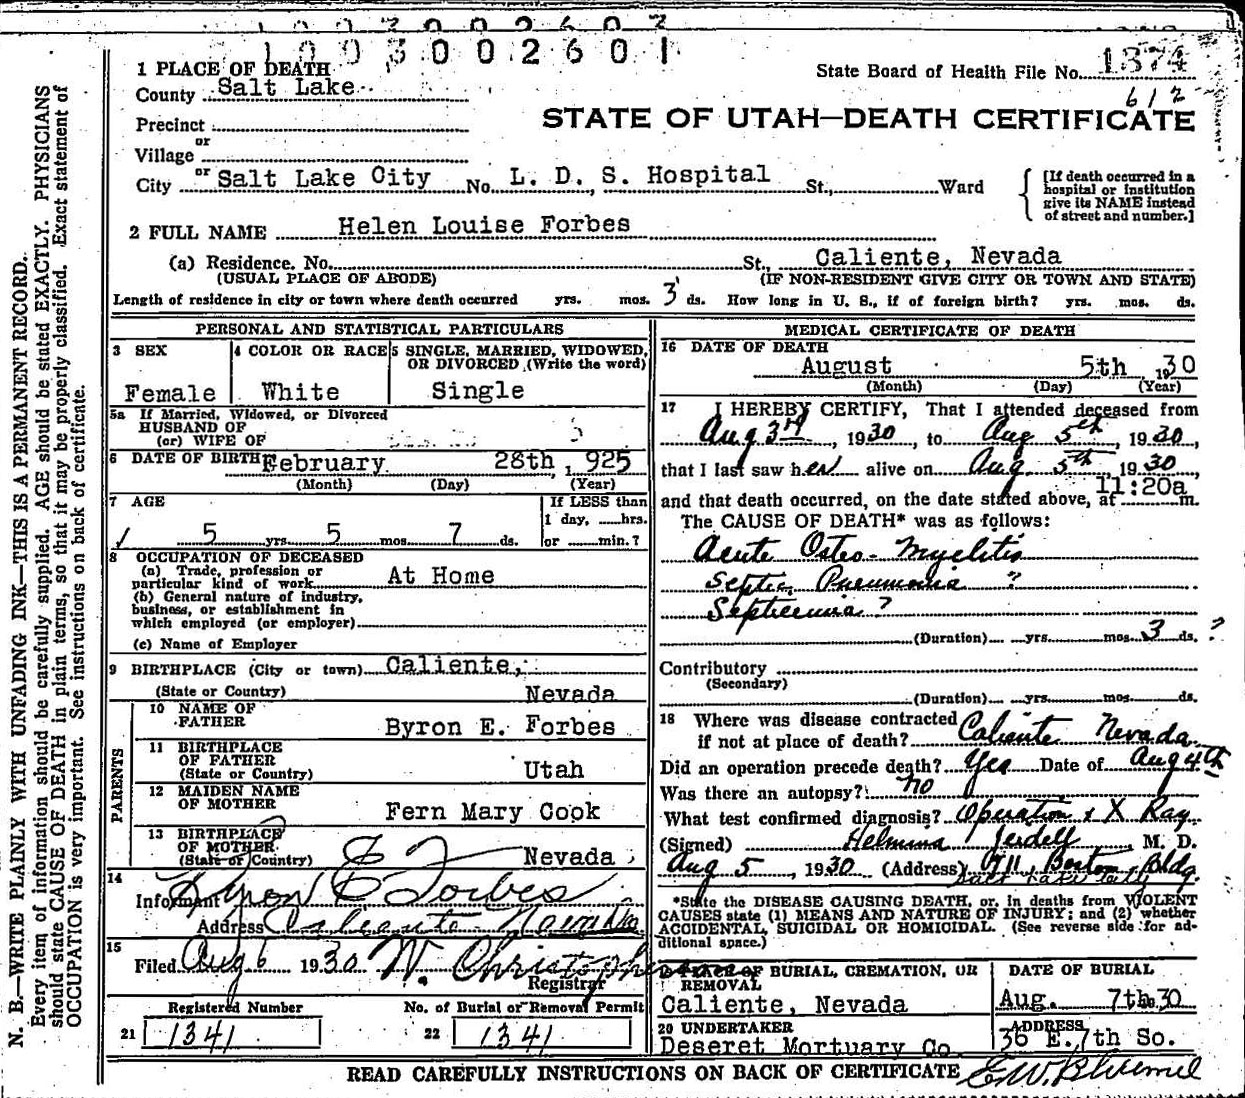 1003002601
1 PLACE OF DEATH
State Board of Health File No. 1374
612
County Salt Lake
STATE OF UTAH—DEATH CERTIFICATE
Precinct
or
Village
or
City Salt Lake City No. L. D. S. Hospital St., Ward
[If death occurred in a hospital or institution give its NAME instead of street and number.]
2 FULL NAME Helen Louise Forbes
(a) Residence. No. St., Caliente, Nevada
(USUAL PLACE OF ABODE) (IF NON-RESIDENT GIVE CITY OR TOWN AND STATE)
Length of residence in city or town where death occurred yrs. mos. 3 ds. How long in U. S., if of foreign birth? yrs. mos. ds.
PERSONAL AND STATISTICAL PARTICULARS
3 SEX
Female
4 COLOR OR RACE
White
5 SINGLE, MARRIED, WIDOWED,
OR DIVORCED (Write the word)
Single
5a If Married, Widowed, or Divorced
HUSBAND OF
(or) WIFE OF
6 DATE OF BIRTH February 28th, 925
(Month) (Day) (Year)
7 AGE
5 yrs. 5 mos. 7 ds.
If LESS than
1 day, hrs.
or min.?
8 OCCUPATION OF DECEASED
(a) Trade, profession or
particular kind of work At Home
(b) General nature of industry,
business, or establishment in
which employed (or employer)
(c) Name of Employer
9 BIRTHPLACE (City or town) Caliente,
(State or Country) Nevada
PARENTS
10 NAME OF
FATHER Byron E. Forbes
11 BIRTHPLACE
OF FATHER
(State or Country) Utah
12 MAIDEN NAME
OF MOTHER Fern Mary Cook
13 BIRTHPLACE
OF MOTHER
(State or Country) Nevada
14
Informant Byron E Forbes
Address Caliente
15
Filed Aug 6 1930 W. Christopherson
Registrar
Registered Number No. of Burial or Removal Permit
21 1341 22 1341
MEDICAL CERTIFICATE OF DEATH
16 DATE OF DEATH
August 5th, 1930
(Month) (Day) (Year)
17 I HEREBY CERTIFY, That I attended deceased from
Aug 3rd, 1930, to Aug 5th, 1930,
that I last saw her alive on Aug 5th 1930,
and that death occurred, on the date stated above, at 11:20a m.
The CAUSE OF DEATH* was as follows:
Acute Osteo-Myelitis
Septic Pneumonia ?
Septicemia ?
(Duration) yrs. mos. 3 ds. ?
Contributory
(Secondary)
(Duration) yrs. mos. ds.
18 Where was disease contracted
if not at place of death? Caliente Nevada
Did an operation precede death? Yes Date of Aug 4th
Was there an autopsy? no
What test confirmed diagnosis? Operation & X Ray
(Signed) M. D.
Aug 5, 1930 (Address) 911 Boston Bldg.
Salt Lake City
*State the DISEASE CAUSING DEATH, or, in deaths from VIOLENT
CAUSES state (1) MEANS AND NATURE OF INJURY; and (2) whether
ACCIDENTAL, SUICIDAL OR HOMICIDAL. (See reverse side for ad-
ditional space.)
19 PLACE OF BURIAL, CREMATION, OR
REMOVAL
Caliente, Nevada
DATE OF BURIAL
Aug. 7th 1930
20 UNDERTAKER
Deseret Mortuary Co.
ADDRESS
36 E. 7th So.
READ CAREFULLY INSTRUCTIONS ON BACK OF CERTIFICATE
N. B.—WRITE PLAINLY WITH UNFADING INK—THIS IS A PERMANENT RECORD.
Every item of information should be carefully supplied. AGE should be stated EXACTLY. PHYSICIANS
should state CAUSE OF DEATH in plain terms, so that it may be properly classified. Exact statement of
OCCUPATION is very important. See instructions on back of certificate.